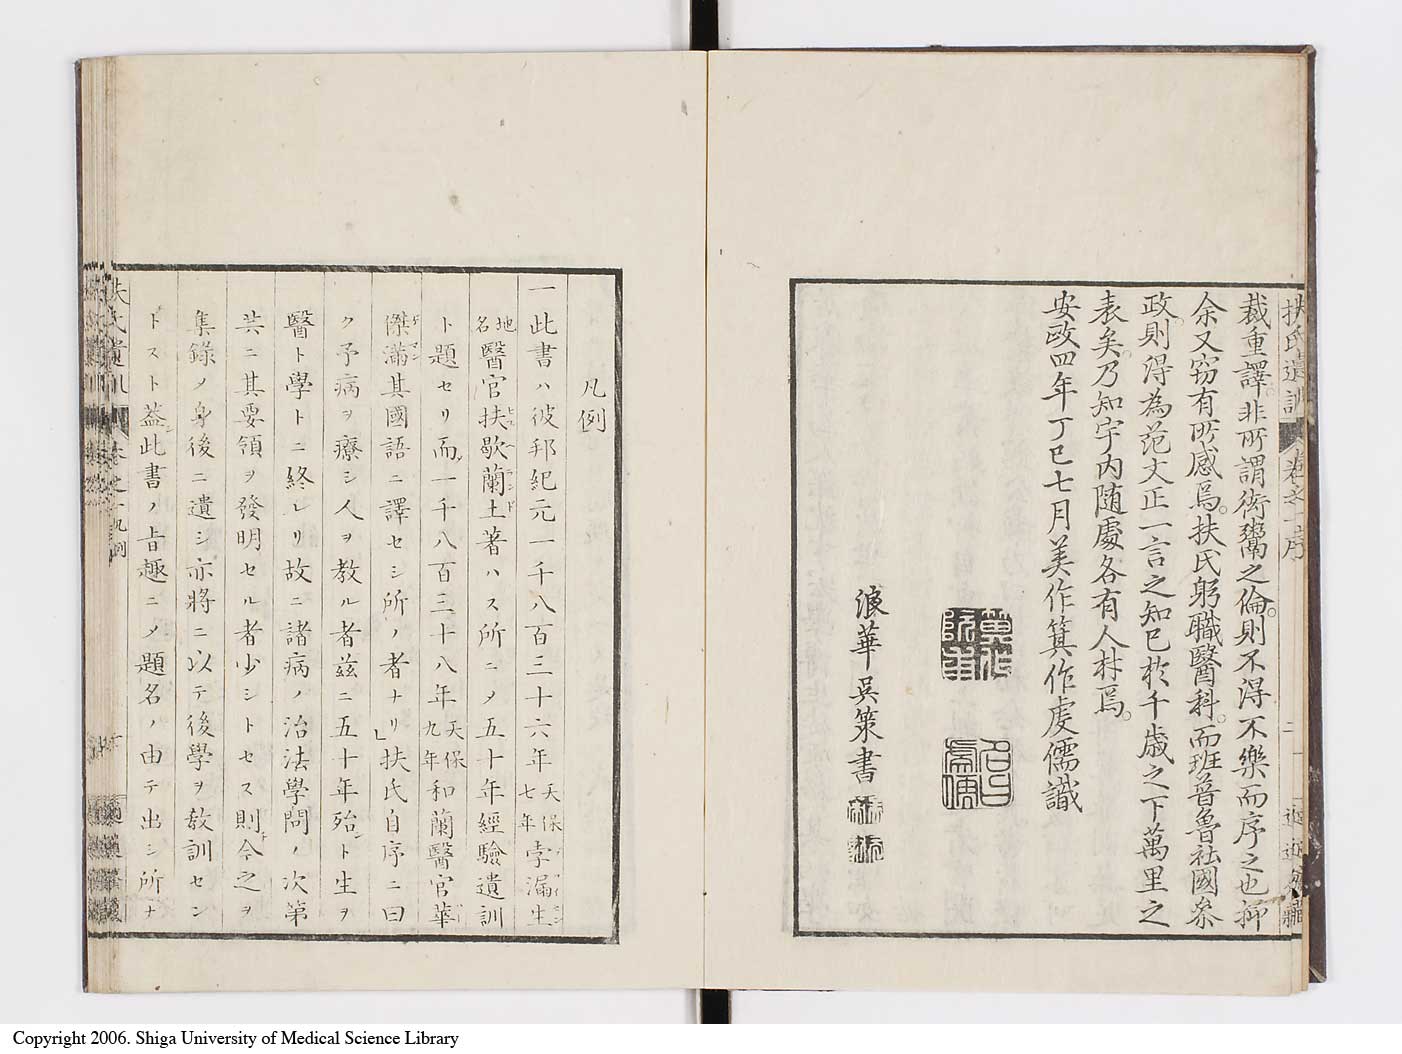 扶氏遺訓 卷之一序
裁重譯非所謂衒鬻之倫則不得不樂而序之也抑
余又窃有所感焉扶氏躬職醫科而班普魯社國叅
政則得為范文正一言之知已於千歲之下萬里之
表矣乃知宇内随處各有人材焉
安政四年丁巳七月美作箕作虔儒識
浪華吳策書
凡例
一此書ハ彼邦紀元一千八百三十六年天保七年孛漏生
地名醫官扶歇蘭土著ハス所ニ乄五十年經驗遺訓
ト題セリ而一千八百三十八年天保九年和蘭醫官華
傑滿其國語ニ譯セシ所ノ者ナリ扶氏自序ニ曰
ク予病ヲ療シ人ヲ教ル者茲ニ五十年殆ト生ヲ
醫ト學トニ終レリ故ニ諸病ノ治法學問ノ次第
共ニ其要領ヲ發明セル者少シトセス則今之ヲ
集錄乄身後ニ遺シ亦將ニ以テ後學ヲ教訓セン
トスト葢此書ノ旨趣ニ乄題名ノ由テ出シ所ナ
扶氏遺訓 卷之一凡例
Copyright 2006. Shiga University of Medical Science Library